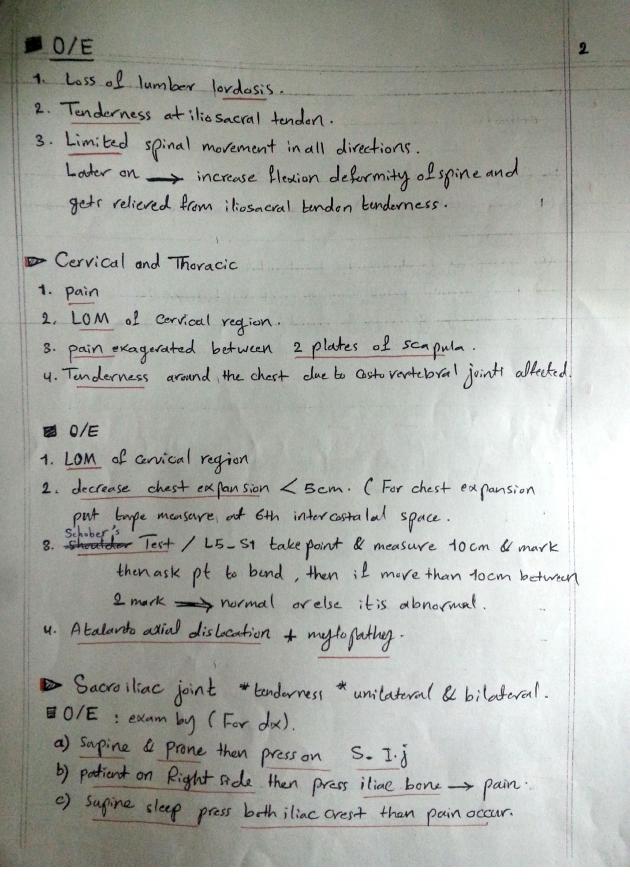 O/E
2
1. Loss of lumber lordosis.
2. Tenderness at iliosacral tendon.
3. Limited spinal movement in all directions.
Later on → increase flexion deformity of spine and
gets relieved from iliosacral tendon tenderness.
Cervical and Thoracic
1. pain
2. LOM of cervical region.
3. pain exagerated between 2 plates of scapula.
4. Tenderness around the chest due to Costovertebral joints affected.
O/E
1. LOM of cervical region
2. decrease chest expansion < 5cm. ( For chest expansion
put tape measure, at 6th intercostalal space.
Schober's
3. Test / L5-S1 take point & measure 10cm & mark
then ask pt to bend, then if more than 10cm between
2 mark ⇒ normal or else it is abnormal.
4. Atalanto axial dislocation + mylopathy.
Sacroiliac joint *tenderness *unilateral & bilateral.
O/E : exam by ( For dx).
a) supine & prone then press on S.I.j
b) patient on Right side then press iliac bone → pain.
c) supine sleep press both iliac crest then pain occur.